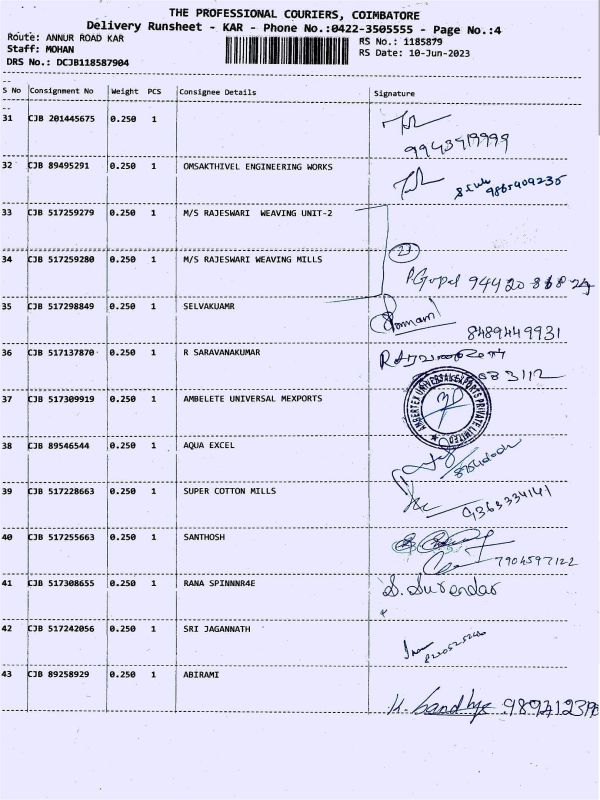 THE PROFESSIONAL COURIERS, COIMBATORE
Delivery Runsheet - KAR - Phone No.:0422-3505555 - Page No.:4
Route: ANNUR ROAD KAR
RS No.: 1185879
Staff: MOHAN
RS Date: 10-Jun-2023
DRS No.: DCJB118587904
S No Consignment No Weight PCS Consignee Details Signature
31 CJB 201445675 0.250 1
9943919999
32 CJB 89495291 0.250 1 OMSAKTHIVEL ENGINEERING WORKS
33 CJB 517259279 0.250 1 M/S RAJESWARI WEAVING UNIT-2
34 CJB 517259280 0.250 1 M/S RAJESWARI WEAVING MILLS
P.Gopal
35 CJB 517298849 0.250 1 SELVAKUAMR
8489449931
36 CJB 517137870 0.250 1 R SARAVANAKUMAR
37 CJB 517309919 0.250 1 AMBELETE UNIVERSAL MEXPORTS
AMBERTEX UNIVERSAL EXPORTS PRIVATE LIMITED
38 CJB 89546544 0.250 1 AQUA EXCEL
39 CJB 517228663 0.250 1 SUPER COTTON MILLS
9363334141
40 CJB 517255663 0.250 1 SANTHOSH
7904597122
41 CJB 517308655 0.250 1 RANA SPINNNR4E
S. Surendar
42 CJB 517242056 0.250 1 SRI JAGANNATH
43 CJB 89258929 0.250 1 ABIRAMI